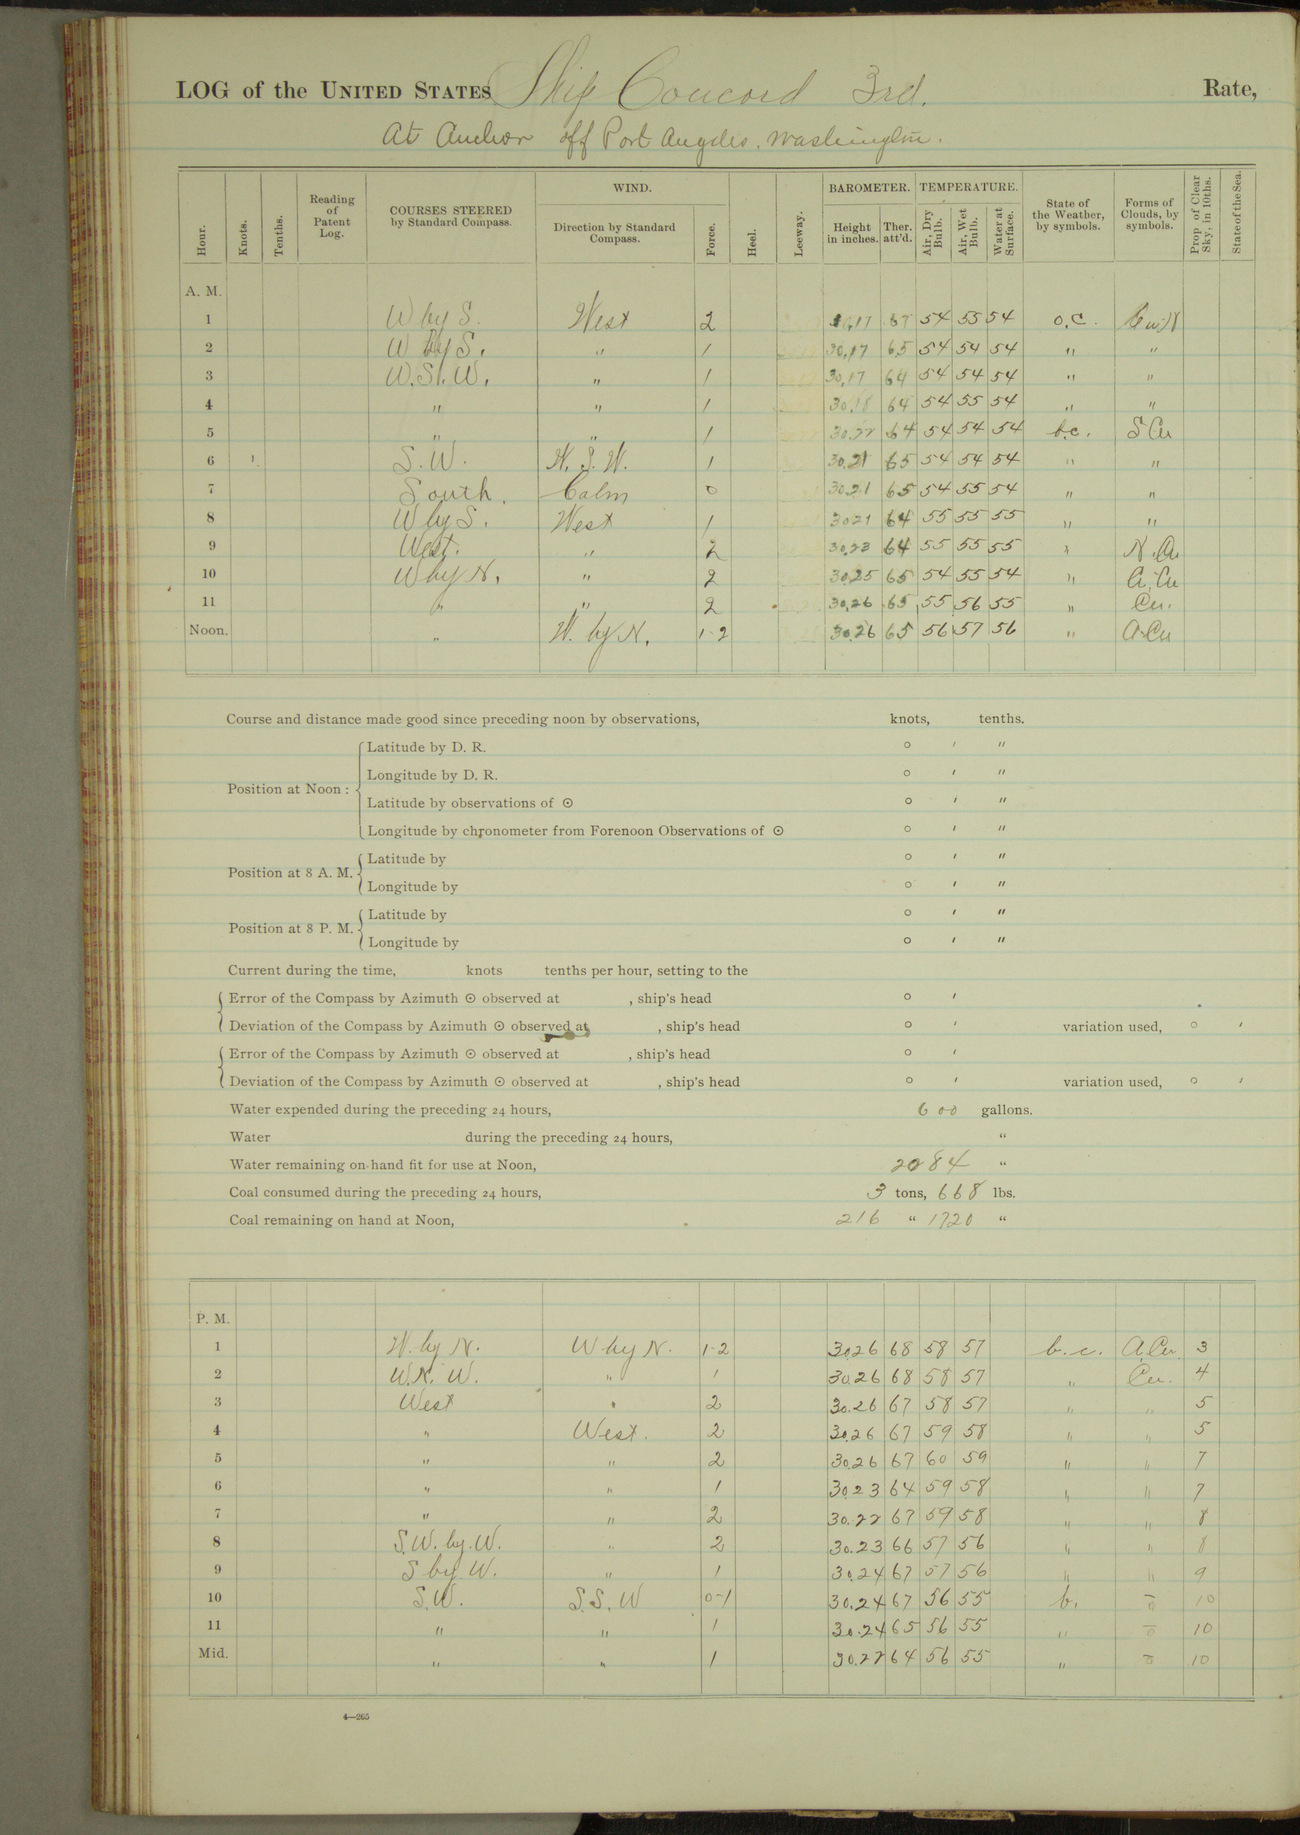 LOG of the UNITED STATES Ship Concord 3rd. Rate,
At Anchor off Port Angeles, Washington.
Hour. Knots. Tenths. Reading of Patent Log. COURSES STEERED by Standard Compass. WIND. Direction by Standard Compass. Force. Heel. Leeway. BAROMETER. Height in inches. Ther. att'd. TEMPERATURE. Air, Dry Bulb. Air, Wet Bulb. Water at Surface. State of the Weather, by symbols. Forms of Clouds, by symbols. Prop. of Clear Sky, in 10ths. State of the Sea.
A. M.
1 W by S. West 2 30.17 67 54 55 54 o.c.
2 W by S. " 1 30.17 65 54 54 54 " "
3 W.S.W. " 1 30.17 64 54 54 54 " "
4 " " 1 30.18 64 54 55 54 " "
5 " " 1 30.22 64 54 54 54 b.c. S Cu
6 S.W. 1 30.21 65 54 54 54 " "
7 South. Calm 0 30.21 65 54 55 54 " "
8 W by S. West 1 30.21 64 55 55 55 " "
9 West. " 2 30.23 64 55 55 55 " N. Cu
10 W by N. " 2 30.25 65 54 55 54 " A. Cu
11 " " 2 30.26 65 55 56 55 " Cu.
Noon. " W. by N. 1-2 30.26 65 56 57 56 " A. Cu
Course and distance made good since preceding noon by observations, knots, tenths.
Position at Noon :
Latitude by D. R. ° ′ ″
Longitude by D. R. ° ′ ″
Latitude by observations of ☉ ° ′ ″
Longitude by chronometer from Forenoon Observations of ☉ ° ′ ″
Position at 8 A. M.
Latitude by ° ′ ″
Longitude by ° ′ ″
Position at 8 P. M.
Latitude by ° ′ ″
Longitude by ° ′ ″
Current during the time, knots tenths per hour, setting to the
Error of the Compass by Azimuth ☉ observed at , ship's head ° ′
Deviation of the Compass by Azimuth ☉ observed at , ship's head ° ′ variation used, ° ′
Error of the Compass by Azimuth ☉ observed at , ship's head ° ′
Deviation of the Compass by Azimuth ☉ observed at , ship's head ° ′ variation used, ° ′
Water expended during the preceding 24 hours, 600 gallons.
Water during the preceding 24 hours, "
Water remaining on hand fit for use at Noon, 2084 "
Coal consumed during the preceding 24 hours, 3 tons, 668 lbs.
Coal remaining on hand at Noon, 216 " 1720 "
P. M.
1 W. by N. W by N. 1-2 30.26 68 58 57 b.c. A. Cu. 3
2 W.N.W. " 1 30.26 68 58 57 " Cu. 4
3 West " 2 30.26 67 58 57 " " 5
4 " West. 2 30.26 67 59 58 " " 5
5 " " 2 30.26 67 60 59 " " 7
6 " " 1 30.23 64 59 58 " " 7
7 " " 2 30.22 67 59 58 " " 8
8 S.W. by W. " 2 30.23 66 57 56 " " 8
9 S by W. " 1 30.24 67 57 56 " " 9
10 S.W. S.S.W 0-1 30.24 67 56 55 b. 0 10
11 " " 1 30.24 65 56 55 " 0 10
Mid. " " 1 30.22 64 56 55 " 0 10
4—265